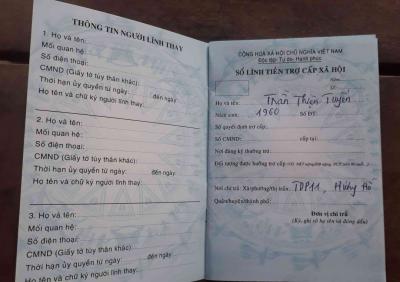 THÔNG TIN NGƯỜI LĨNH THAY
1. Họ và tên:
Mối quan hệ:
Số điện thoại:
CMND (Giấy tờ tùy thân khác):
Thời hạn ủy quyền từ ngày: đến ngày
Họ tên và chữ ký người lĩnh thay:
2. Họ và tên:
Mối quan hệ:
Số điện thoại:
CMND (Giấy tờ tùy thân khác):
Thời hạn ủy quyền từ ngày: đến ngày
Họ tên và chữ ký người lĩnh thay:
3. Họ và tên:
Mối quan hệ:
Số điện thoại:
CMND (Giấy tờ tùy thân khác):
Thời hạn ủy quyền từ ngày: đến ngày
Họ tên và chữ ký người lĩnh thay:
CỘNG HOÀ XÃ HỘI CHỦ NGHĨA VIỆT NAM
Độc lập - Tự do - Hạnh phúc
SỔ LĨNH TIỀN TRỢ CẤP XÃ HỘI
Họ và tên: Trần Thiện
Năm sinh: 1960 Số ĐT:
Số quyết định trợ cấp:
Số CMND: cấp tại
Nơi đăng ký thường trú:
Đối tượng được hưởng trợ cấp
Nơi chi trả: Xã/phường/thị trấn: TDP11, Hương Hồ
Quận/huyện/thành phố:
Đơn vị chi trả
(Ký, ghi rõ họ tên và đóng dấu)